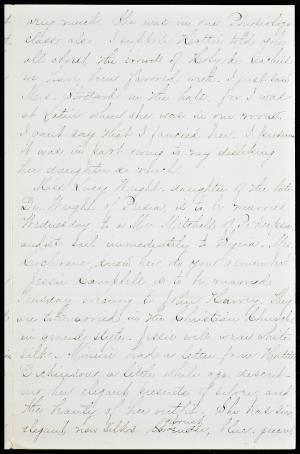 very much. She was in our Physiology
class also. I suppose Hattie told you
all about the crowd of Holyoke teachers
we have been favored with. I just saw
Mrs. Stoddard in the hall, for I was
at Katie's when she was in our room.
I can't say that I fancied her. I presume
it was in part owing to my disliking
her daughter so much.
Miss Lucy Wright, daughter of the late
Dr. Wright of Persia, is to be married
Wednesday to a Mr. Mitchell of
and to sail immediately to Syria. Mrs.
Cochrane, knew her, do you remember
Jessie Campbell is to be married
Tuesday evening to John Harvey. They
are to be married in the Christian Church
in grand style. Jessie will wear white
silk. Minnie had a letter from Hattie
Dickinson a little while ago, describ-
ing her elegant presents of silver, and
the beauty of her outfit. She has six
elegant new silks brown, blue, green,